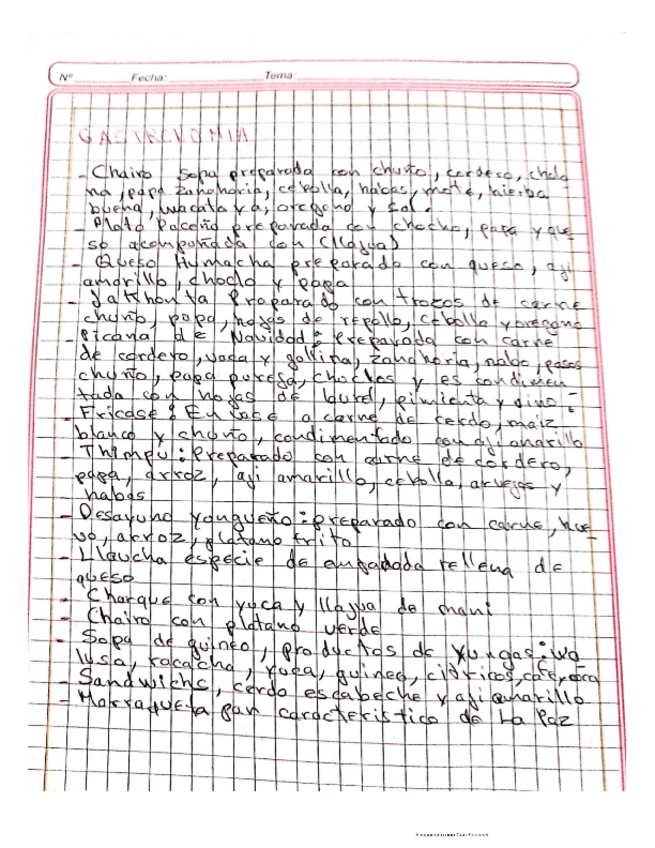 Nº Fecha: Tema:
GASTRONOMIA
- Chairo sopa preparada con chuño, cordero, chalo
na, papa zanahoria, cebolla, habas, mote, hierba
buena, wacataya, oregano y sal.
- Plato Paceño preparada con choclo, papa y que
so acompañada con (llajua)
- Queso Humacha preparado con queso, aji
amarillo, choclo y papa
- Jakkhonta Preparado con trozos de carne
chuño, papa, hojas de repollo, cebolla y oregano
- Picana de Navidad: preparada con carne
de cordero, vaca y gallina, zanahoria, nabo, pasas
chuño, papa puresa, choclos y es condimen
tada con hojas de laurel, pimienta y vino:
- Fricase: En base a carne de cerdo, maiz
blanco y chuño, condimentado con aji amarillo
- Thimpu: Preparado con carne de cordero,
papa, arroz, aji amarillo, cebolla, arvejas y
habas
- Desayuno yongueño: preparado con carne, hue
vo, arroz, platano frito
- Llaucha especie de empadada rellena de
queso
- Charque con yuca y llajua de mani
- Chairo con platano verde
- Sopa de guineo, productos de Yungas: wa
lusa, racacha, yuca, guineo, citricos, café, coca
- Sandwichs, cerdo escabeche y aji amarillo
- Marraqueta pan caracteristico de La Paz